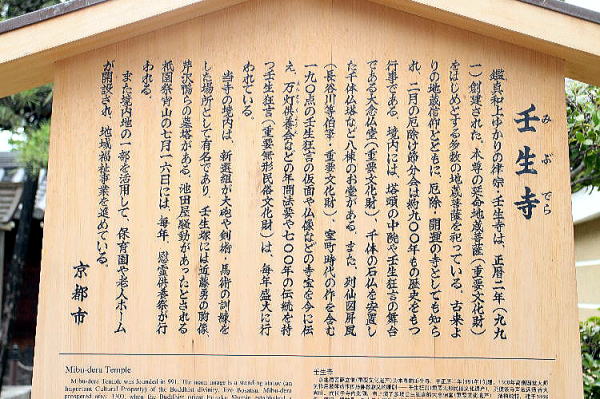 壬生寺
みぶでら
鑑真和上ゆかりの律宗・壬生寺は、正暦二年（九九
一）創建された。本尊の延命地蔵菩薩（重要文化財）
をはじめとする多数の地蔵菩薩を祀っている。古来よ
りの地蔵信仰とともに、厄除・開運の寺としても知ら
れ、二月の厄除け節分会は約九〇〇年もの歴史をもつ
行事である。境内には、塔頭の中院や壬生狂言の舞台
である大念仏堂（重要文化財）、千体の石仏を安置し
た千体仏塔など八棟のお堂がある。また、列仙図屏風
（長谷川等伯筆・重要文化財）、室町時代の作を含む
一九〇点の壬生狂言の仮面や仏像などの寺宝を今に伝
え、万灯供養会などの年間法要や七〇〇年の伝統を持
つ壬生狂言（重要無形民俗文化財）は、毎年盛大に行
われている。
当寺の境内は、新選組が大砲や剣術・馬術の訓練を
した場所として有名であり、壬生塚には近藤勇の胸像、
芹沢鴨らの墓塔がある。池田屋騒動があったとされる
祇園祭宵山の七月一六日には、毎年、慰霊供養祭が行
われる。
また境内地の一部を活用して、保育園や老人ホーム
が開設され、地域福祉事業を進めている。
京都市
Mibu-dera Temple
Mibu-dera Temple was founded in 991. The main image is a standing statue (an
Important Cultural Property) of the Buddhist divinity, Jizo Bosatsu. Mibu-dera
壬生寺